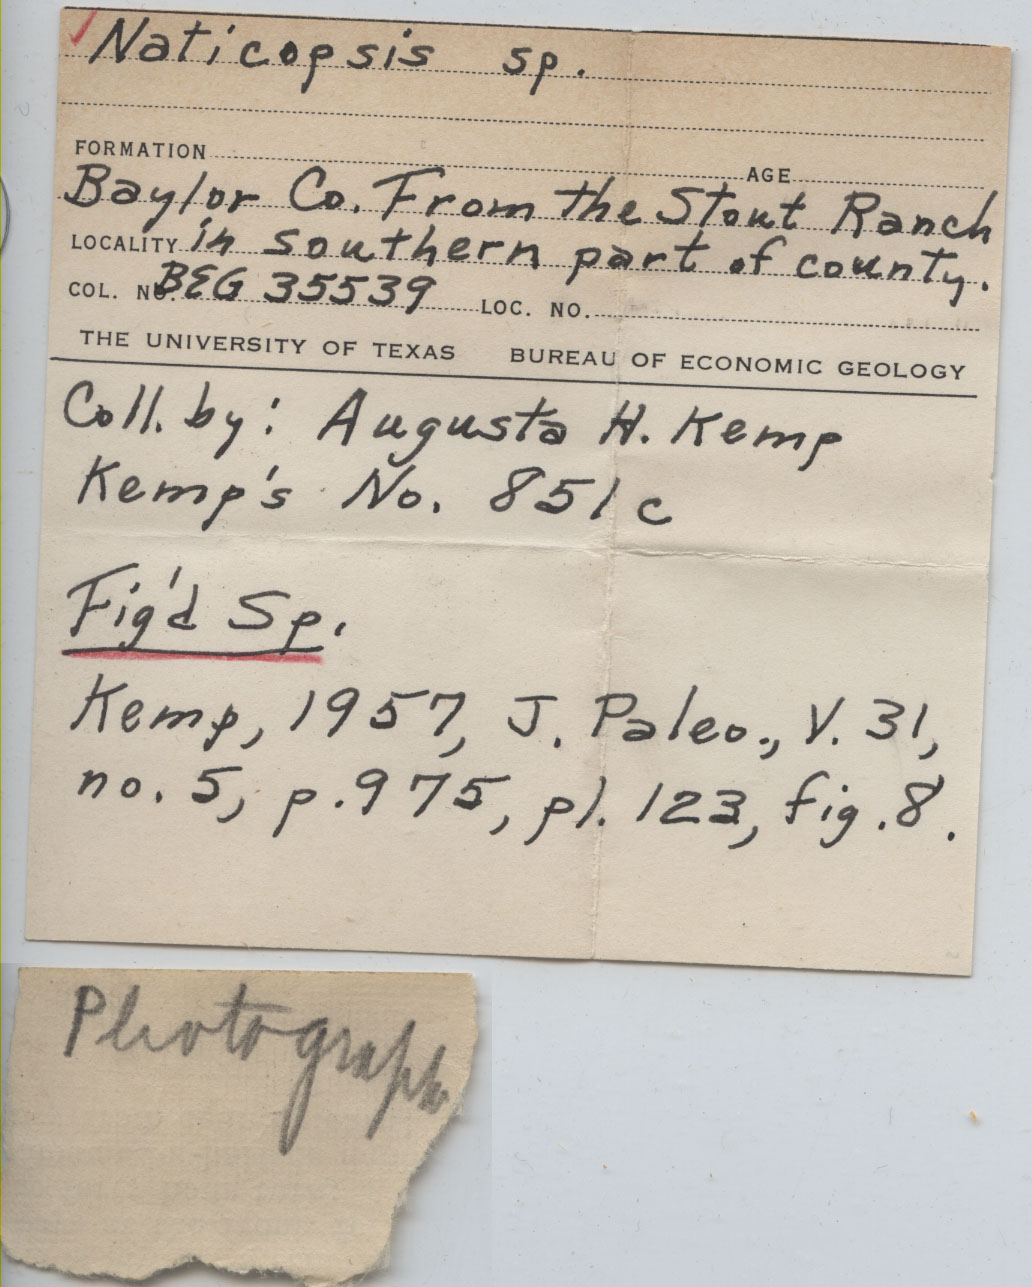 ✓ Naticopsis sp.
FORMATION AGE
Baylor Co. From the Stout Ranch
LOCALITY in southern part of county.
COL. NO. BEG 35539 LOC. NO.
THE UNIVERSITY OF TEXAS BUREAU OF ECONOMIC GEOLOGY
Coll. by: Augusta H. Kemp
Kemp's No. 851c
Fig'd Sp.
Kemp, 1957, J. Paleo., V. 31,
no. 5, p. 975, pl. 123, fig. 8.
Photograph